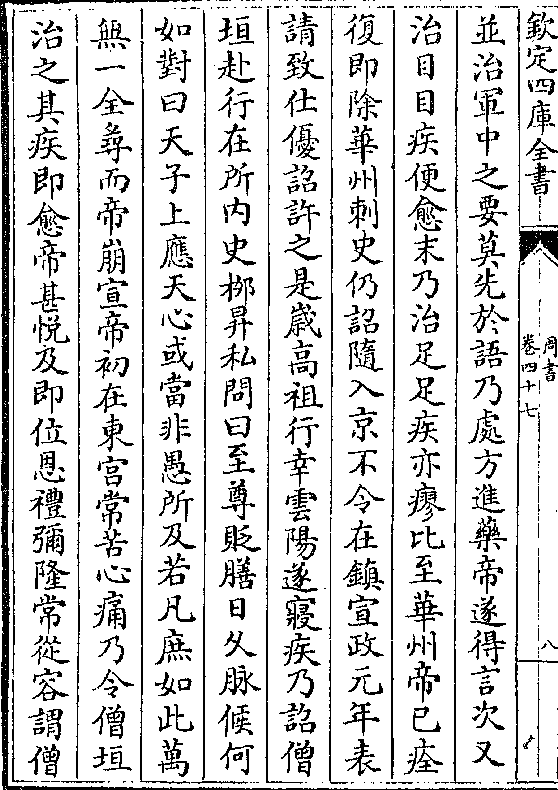 欽定四庫全書
周書
卷四十七
八
並治軍中之要莫先於語乃處方進藥帝遂得言次又
治目目疾便愈末乃治足足疾亦瘳比至華州帝已痊
復即除華州刺史仍詔隨入京不令在鎮宣政元年表
請致仕優詔許之是嵗高祖行幸雲陽遂寢疾乃詔僧
垣赴行在所内史栁昇私問曰至尊貶膳日乆脉候何
如對曰天子上應天心或當非愚所及若凡庶如此萬
無一全尋而帝崩宣帝初在東宫常苦心痛乃令僧垣
治之其疾即愈帝甚悦及即位恩禮彌隆常從容謂僧